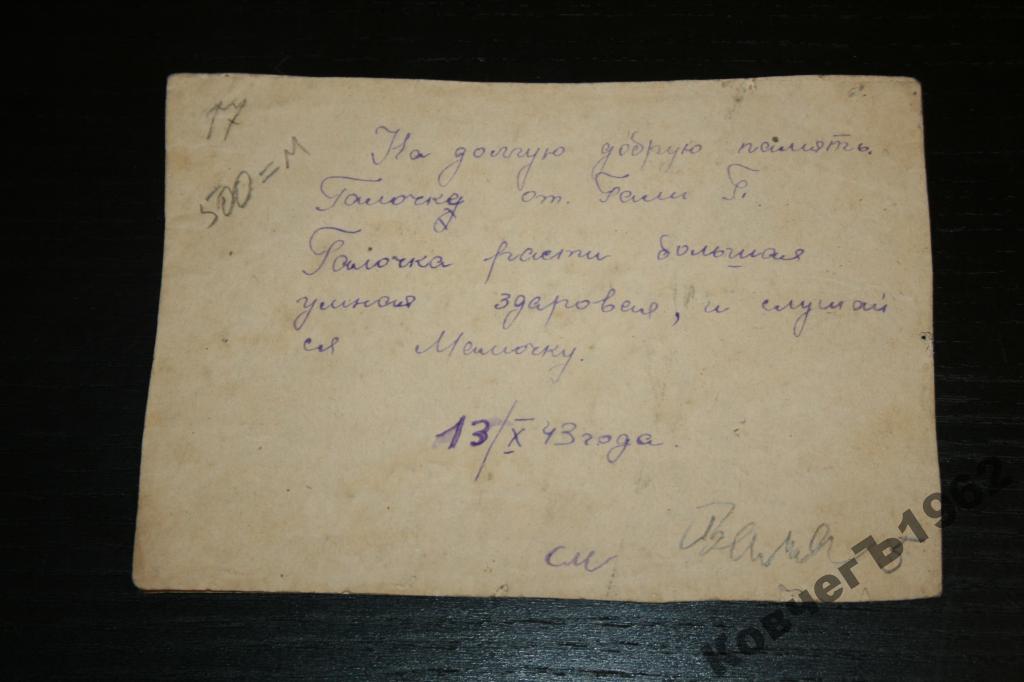 17
500=м
На долгую добрую память.
Галочке от. Гали Г.
Галочка расти большая
умная здаровая, и слушай
ся Мамочку.
13/X 43 года.
см
КовчегЪ1962